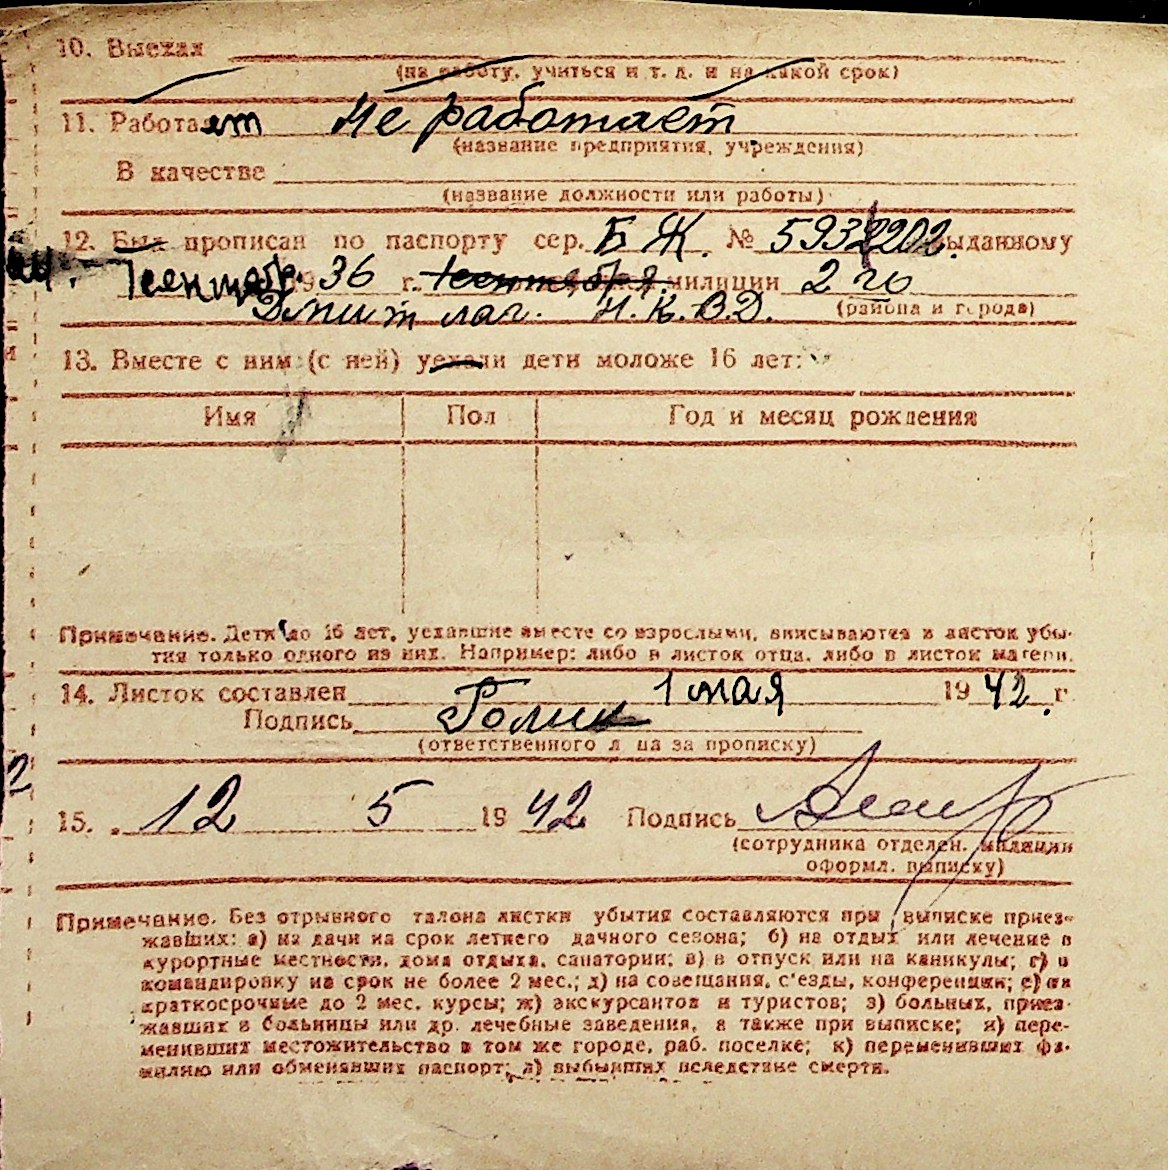 10. Выехал
(на работу, учиться и т. д. и на какой срок)
11. Работает Не работает
(название предприятия, учреждения)
В качестве
(название должности или работы)
12. Был прописан по паспорту сер. БЖ. № 5932202. выданному
1 сентябр. 1936 г. 1 сентября. милиции 2 го
Дмитлаг. Н.К.В.Д. (района и города)
13. Вместе с ним (с ней) уехали дети моложе 16 лет:
Имя Пол Год и месяц рождения
Примечание. Дети до 16 лет, уехавшие вместе со взрослыми, вписываются в листок убы-
тия только одного из них. Например: либо в листок отца, либо в листок матери.
14. Листок составлен 1 мая 1942. г
Подпись
(ответственного лица за прописку)
2
15. 12 5 1942 Подпись
(сотрудника отделен. милиции
оформл. выписку)
Примечание. Без отрывного талона листки убытия составляются при выписке приез-
жавших: а) на дачи на срок летнего дачного сезона; б) на отдых или лечение в
курортные местности, дома отдыха, санатории; в) в отпуск или на каникулы; г) в
командировку на срок не более 2 мес.; д) на совещания, с'езды, конференции; е) на
краткосрочные до 2 мес. курсы; ж) экскурсантов и туристов; з) больных, приез-
жавших в больницы или др. лечебные заведения, а также при выписке; и) пере-
менивших местожительство в том же городе, раб. поселке; к) переменивших фа-
милию или обменявших паспорт; л) выбывших вследствие смерти.